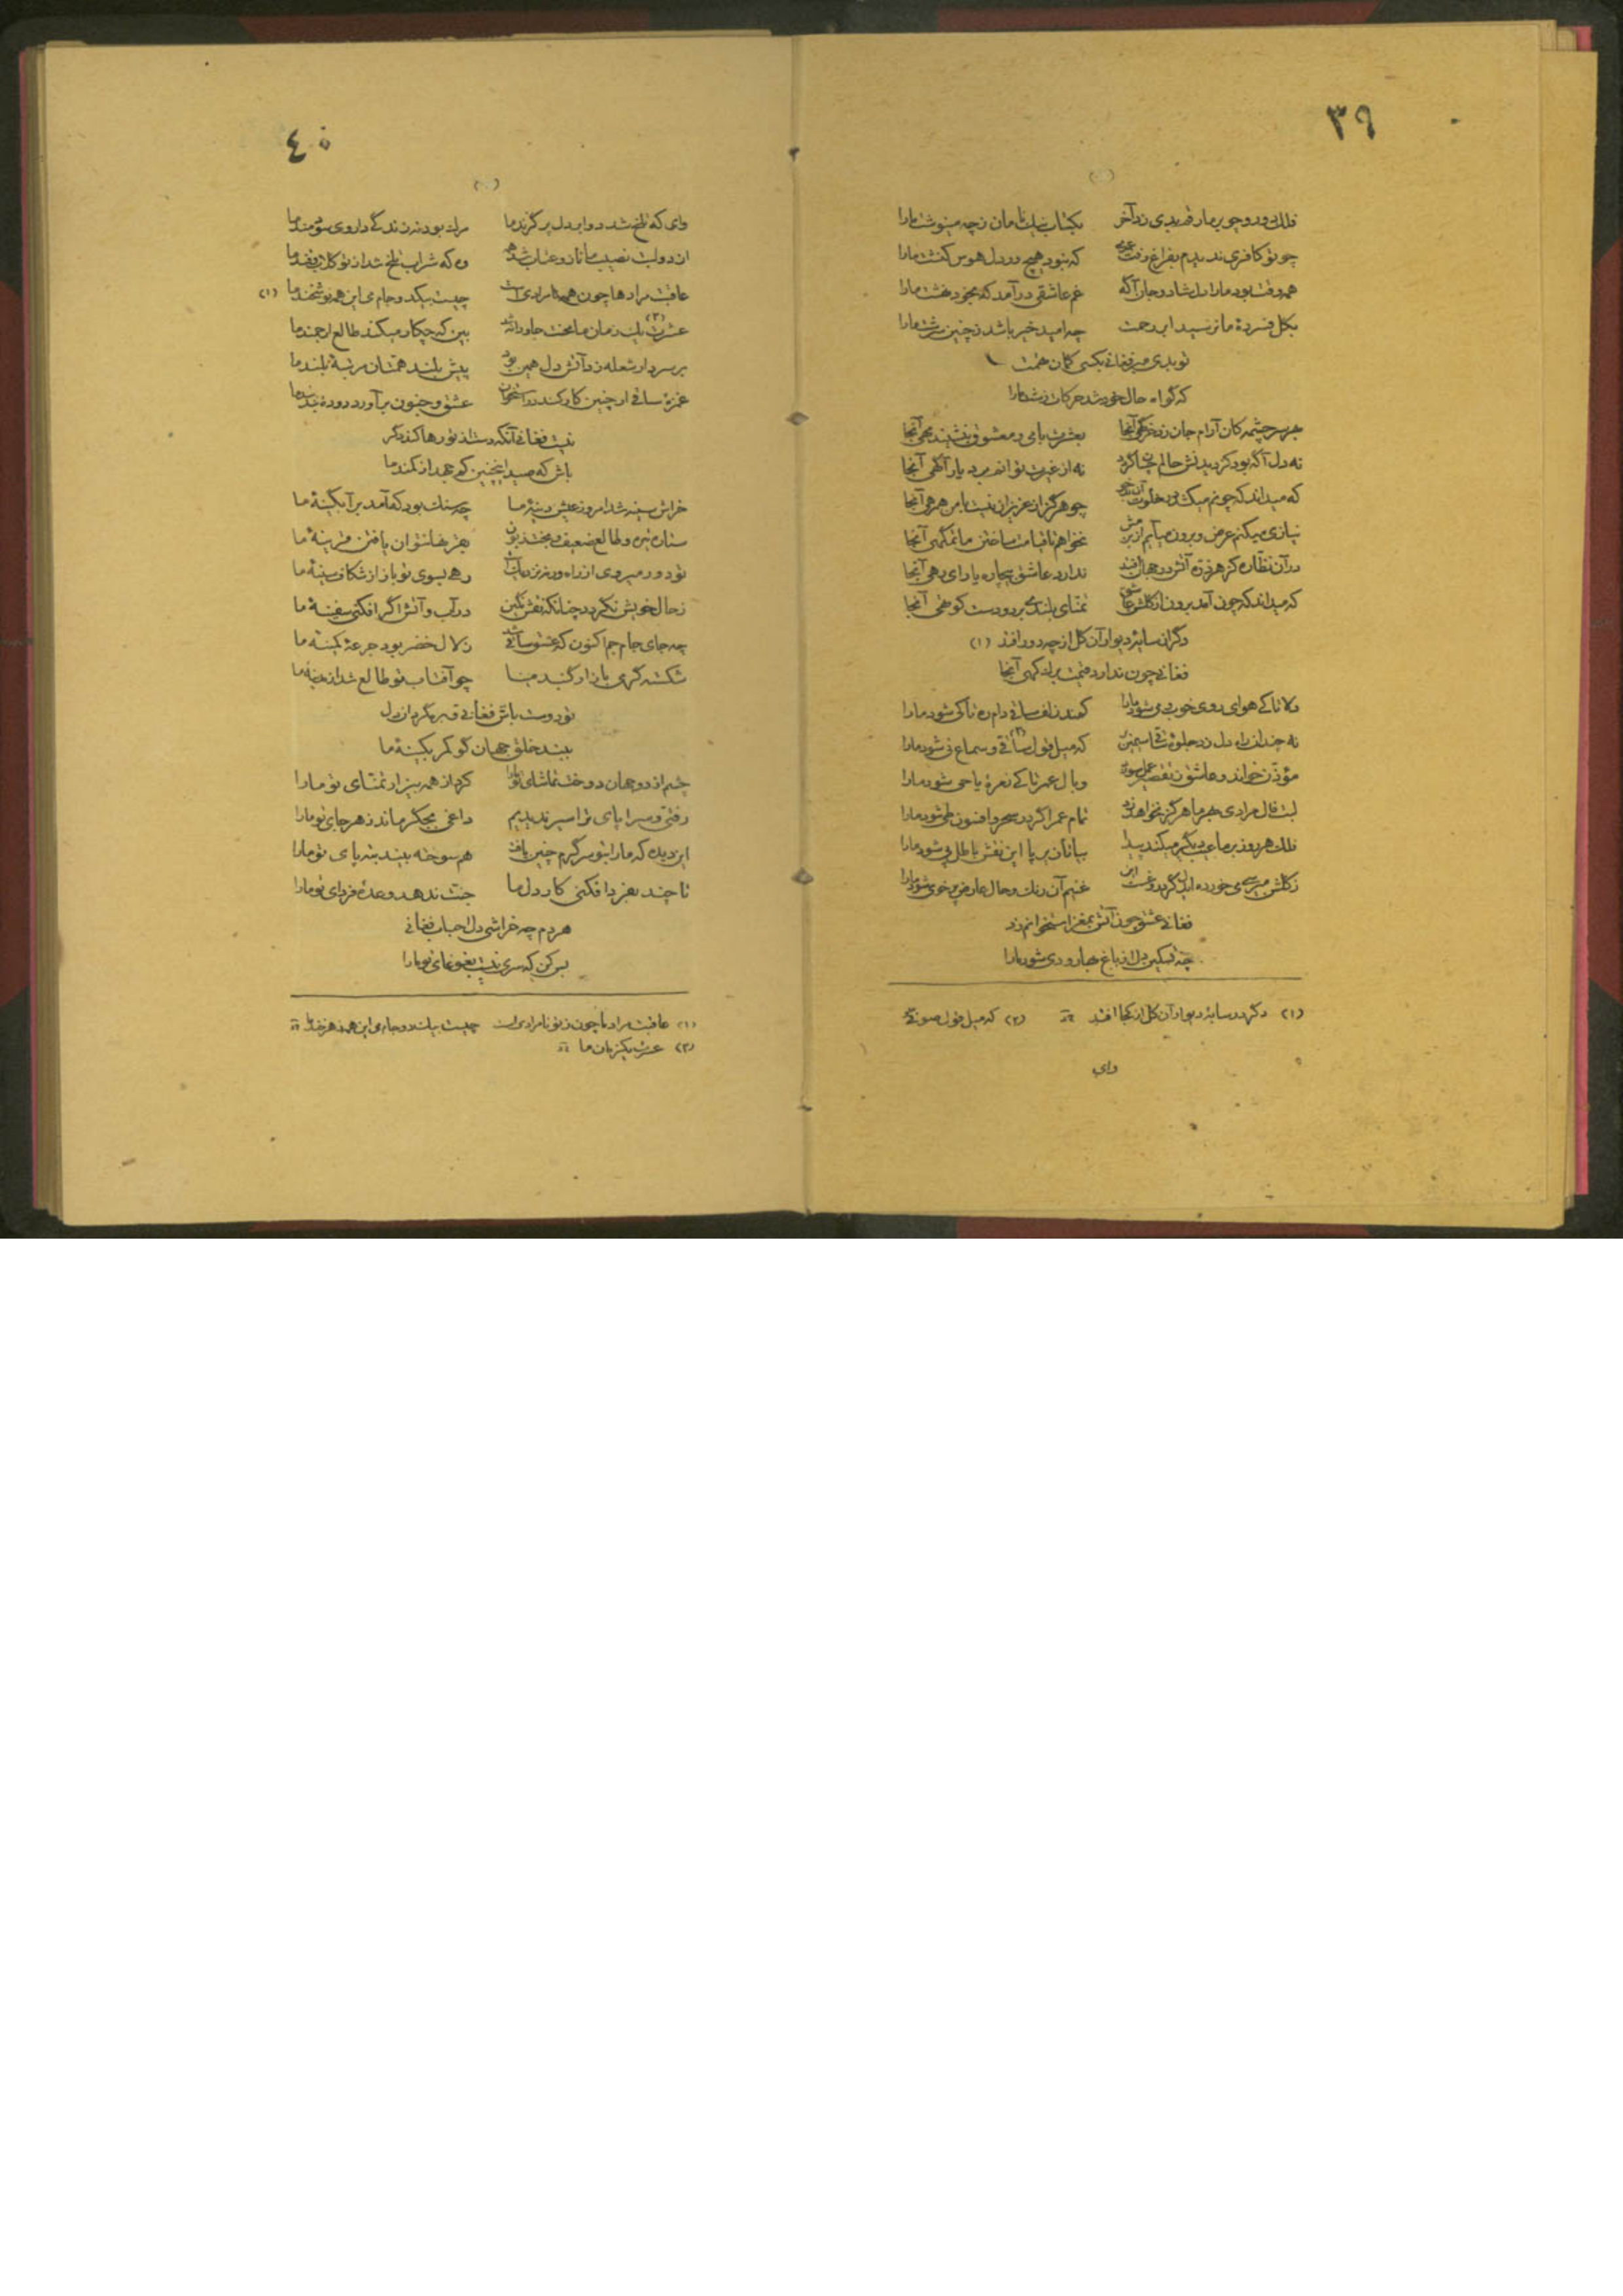 ٣٩
فلک دور و چو بر ما رقم بدی زد آخر بکتاب نیک نامان ز چه مینوشت ما را
چو تو کافری ندیدم بفراغ رفت عمری که نبود هیچ در دل هوس کنشت ما را
همه وقت بود ما را دل شاد و جان آگه غم عاشقی درآمد که بخود نهشت ما را
بگل فسردهٔ ما نرسید ابر رحمت چه امید خیر باشد ز چنین سرشت ما را
تو بدی مبر فغانی بکسی گمان همت
که گواه حال خود شد حرکات زشت ما را
بهر سرچشمه کان آرام جان زد خرگهی آنجا بعشرت با می و معشوق بنشیند بهی آنجا
نه دل آگه بود کز دیدنش حالم چسان گردد نه از غیرت توانم برد یار آگهی آنجا
که میداند که چونم میکشد در خلوت آن بدخو چو هرگز از عزیزان نیست با من همرهی آنجا
نیازی میکنم عرض و برون میآیم از بزمش نخواهم تا قیامت ساختن ماتمگهی آنجا
در آن نظاره کز هر ذره آتش در جهان افتد ندارد عاشق بیچاره یارای رهی آنجا
که میداند که چون آمد برون از گلشن عاشق تمنای بلند می برد دست کوتهی آنجا
دگر از سایهٔ دیوار آن گل از چه دور افتد (۱)
فغانی چون ندارد قیمت برگ کهی آنجا
دلا تا کی هوای روی خوب می شود ما را کمند زلف ساقی دام ره تا کی شود ما را
نه چندان راه دل زد جلوهٔ ساقی سیمین که میل قول ساقی (۲) و سماع نی شود ما را
مؤذن خواند و عاشق را نقصیر عمل سوزد وبال عمر تا کی نعرهٔ یا حی شود ما را
لبت فال مرادی بهر ما هرگز نخواهد زد تمام عمر اگر در سحر و افسون طی شود ما را
فلک هر روز بر ما عیب دیگر میکند پیدا بیا تا بر پا این نقش باطل پی شود ما را
ز گلشن میرسی می خورده غنیم آن رنگ و خال عارض پر خوی شود ما را
فغانی عشق چون آتش بمغز استخوانم زد
چه تسکین دل از باغ بهار و دی شود ما را
(۱) دگر در سایهٔ دیوار آن گل از کجا افتد (۲) که میل قول صوفی
وای
٤٠
وای که تلخ شد دوا بر دل پر گزند ما مرگ بود نه زندگی داروی سودمند ما
از دولبت نصیب ما ناز و عتاب شد همه وه که شراب تلخ شد از تو گلاب و قند ما
عاقبت مرادها چون همه نامرادیست چیست بیک دو جام می این همه نوشخند ما (۱)
عشرت یک زمان (۲) ما بخت جاودانه شد ببین که چکار میکند طالع ارجمند ما
بر سر دار شعله زد آتش دل همین بود پیش بلند همتان مرتبهٔ بلند ما
غمزهٔ ساقی ار چنین کار کند در استخوان عشق و جنون برآورد دود ز بند بند ما
نیست فغانی آنکه دست از تو رها کند دگر
باش که صید اینچنین کم جهد از کمند ما
خراش سینه شد امروز عیش دینهٔ ما چه سنگ بود که آمد بر آبگینهٔ ما
ستاره تیره و طالع ضعیف و بخت زبون بهرزه نتوان یافتن قرینهٔ ما
تو دور میروی از راه ورنه نزدیکست رهی بسوی تو باز از شکاف سینهٔ ما
ز حال خویش نگردد چنانکه نقش نگین در آب و آتش اگر افکنی سفینهٔ ما
چه جای جام جم اکنون که عشق ساقی شد زلال خضر بود جرعهٔ کمینهٔ ما
شکسته گرمی بازار گنبد مینا چو آفتاب تو طالع شد از خزینهٔ ما
تو دوست باش فغانی قهر مگردان دل
ببند خلق جهان گو کمر بکینهٔ ما
چشم از دو جهان دوخت تماشای تو ما را کرد از همه بیزار تمنای تو ما را
رفتی و سراپای ترا سیر ندیدیم داغی بجگر ماند ز هر جای تو ما را
این دیده که ما را بتو سرگرم چنین یافت هم سوخته بیند بته پای تو ما را
تا چند بفردا فکنی کار دل ما جنت ندهد وعدهٔ فردای تو ما را
هر دم چه خراشی دل احباب فغانی
بس کن که سری نیست بغوغای تو ما را
(۱) عاقبت مراد ما چون ز تو نامرادی است چیست بیک دو جام می این همه زهرخند ما
(۲) عشرت یک زمان ما